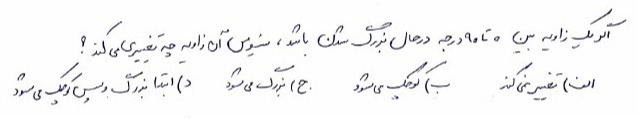 اگر یک زاویه بین ۰ تا ۹۰ درجه درحال بزرگ شدن باشد، سینوس آن زاویه چه تغییری می کند؟
الف) تغییر نمی کند ب) کوچک می شود ج) بزرگ می شود د) ابتدا بزرگ و سپس کوچک می شود